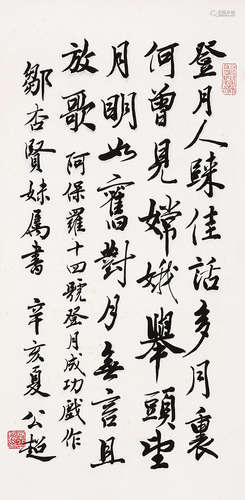 登月人歸佳話多月裏
何曾見嫦娥舉頭望
月明如舊對月無言且
放歌 阿保羅十四號登月成功戲作
鄒杏賢妹屬書 辛亥夏 公超